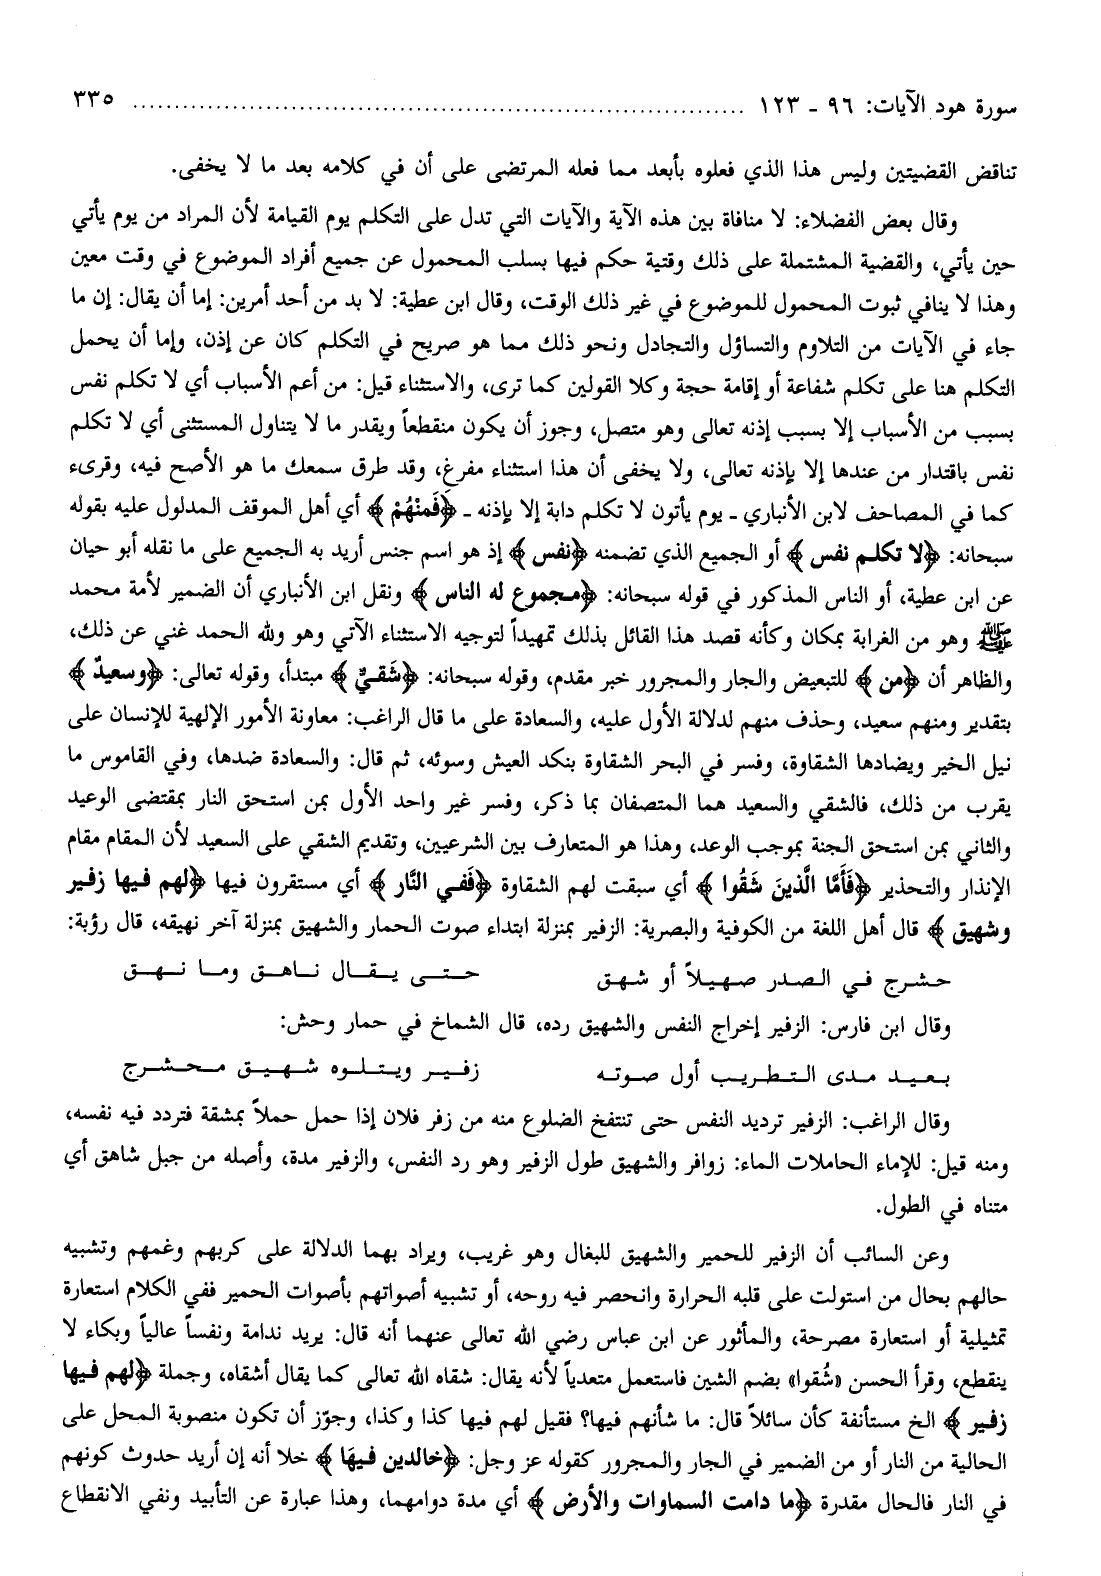 سورة هود الآيات: ٩٦ ـ ١٢٣ ........................................................................... ٣٣٥
تناقض القضيتين وليس هذا الذي فعلوه بأبعد مما فعله المرتضى على أن في كلامه بعد ما لا يخفى.
وقال بعض الفضلاء: لا منافاة بين هذه الآية والآيات التي تدل على التكلم يوم القيامة لأن المراد من يوم يأتي
حين يأتي، والقضية المشتملة على ذلك وقتية حكم فيها بسلب المحمول عن جميع أفراد الموضوع في وقت معين
وهذا لا ينافي ثبوت المحمول للموضوع في غير ذلك الوقت، وقال ابن عطية: لا بد من أحد أمرين: إما أن يقال: إن ما
جاء في الآيات من التلاوم والتساؤل والتجادل ونحو ذلك مما هو صريح في التكلم كان عن إذن، وإما أن يحمل
التكلم هنا على تكلم شفاعة أو إقامة حجة وكلا القولين كما ترى، والاستثناء قيل: من أعم الأسباب أي لا تكلم نفس
بسبب من الأسباب إلا بسبب إذنه تعالى وهو متصل، وجوز أن يكون منقطعاً ويقدر ما لا يتناول المستثنى أي لا تكلم
نفس باقتدار من عندها إلا بإذنه تعالى، ولا يخفى أن هذا استثناء مفرغ، وقد طرق سمعك ما هو الأصح فيه، وقرىء
كما في المصاحف لابن الأنباري ـ يوم يأتون لا تكلم دابة إلا بإذنه ـ ﴿فَمِنْهُمْ﴾ أي أهل الموقف المدلول عليه بقوله
سبحانه: ﴿لا تكلم نفس﴾ أو الجميع الذي تضمنه ﴿نفس﴾ إذ هو اسم جنس أريد به الجميع على ما نقله أبو حيان
عن ابن عطية، أو الناس المذكور في قوله سبحانه: ﴿مجموع له الناس﴾ ونقل ابن الأنباري أن الضمير لأمة محمد
ﷺ وهو من الغرابة بمكان وكأنه قصد هذا القائل بذلك تمهيداً لتوجيه الاستثناء الآتي وهو ولله الحمد غني عن ذلك،
والظاهر أن ﴿من﴾ للتبعيض والجار والمجرور خبر مقدم، وقوله سبحانه: ﴿شَقيٌّ﴾ مبتدأ، وقوله تعالى: ﴿وسعيدٌ﴾
بتقدير ومنهم سعيد، وحذف منهم لدلالة الأول عليه، والسعادة على ما قال الراغب: معاونة الأمور الإلهية للإنسان على
نيل الخير ويضادها الشقاوة، وفسر في البحر الشقاوة بنكد العيش وسوئه، ثم قال: والسعادة ضدها، وفي القاموس ما
يقرب من ذلك، فالشقي والسعيد هما المتصفان بما ذكر، وفسر غير واحد الأول بمن استحق النار بمقتضى الوعيد
والثاني بمن استحق الجنة بموجب الوعد، وهذا هو المتعارف بين الشرعيين، وتقديم الشقي على السعيد لأن المقام مقام
الإنذار والتحذير ﴿فَأَمَّا الَّذينَ شَقُوا﴾ أي سبقت لهم الشقاوة ﴿فَفي النَّار﴾ أي مستقرون فيها ﴿لهم فيها زفير
وشهيق﴾ قال أهل اللغة من الكوفية والبصرية: الزفير بمنزلة ابتداء صوت الحمار والشهيق بمنزلة آخر نهيقه، قال رؤبة:
حشرج في الصدر صهيلاً أو شهق حتى يقال ناهق وما نهق
وقال ابن فارس: الزفير إخراج النفس والشهيق رده، قال الشماخ في حمار وحش:
بعيد مدى التطريب أول صوته زفير ويتلوه شهيق محشرج
وقال الراغب: الزفير ترديد النفس حتى تنتفخ الضلوع منه من زفر فلان إذا حمل حملاً بمشقة فتردد فيه نفسه،
ومنه قيل: للإماء الحاملات الماء: زوافر والشهيق طول الزفير وهو رد النفس، والزفير مدة، وأصله من جبل شاهق أي
متناه في الطول.
وعن السائب أن الزفير للحمير والشهيق للبغال وهو غريب، ويراد بهما الدلالة على كربهم وغمهم وتشبيه
حالهم بحال من استولت على قلبه الحرارة وانحصر فيه روحه، أو تشبيه أصواتهم بأصوات الحمير ففي الكلام استعارة
تمثيلية أو استعارة مصرحة، والمأثور عن ابن عباس رضي الله تعالى عنهما أنه قال: يريد ندامة ونفساً عالياً وبكاء لا
ينقطع، وقرأ الحسن «شُقوا» بضم الشين فاستعمل متعدياً لأنه يقال: شقاه الله تعالى كما يقال أشقاه، وجملة ﴿لهم فيها
زفير﴾ الخ مستأنفة كأن سائلاً قال: ما شأنهم فيها؟ فقيل لهم فيها كذا وكذا، وجوّز أن تكون منصوبة المحل على
الحالية من النار أو من الضمير في الجار والمجرور كقوله عز وجل: ﴿خالدين فيهَا﴾ خلا أنه إن أريد حدوث كونهم
في النار فالحال مقدرة ﴿ما دامت السماوات والأرض﴾ أي مدة دوامهما، وهذا عبارة عن التأبيد ونفي الانقطاع